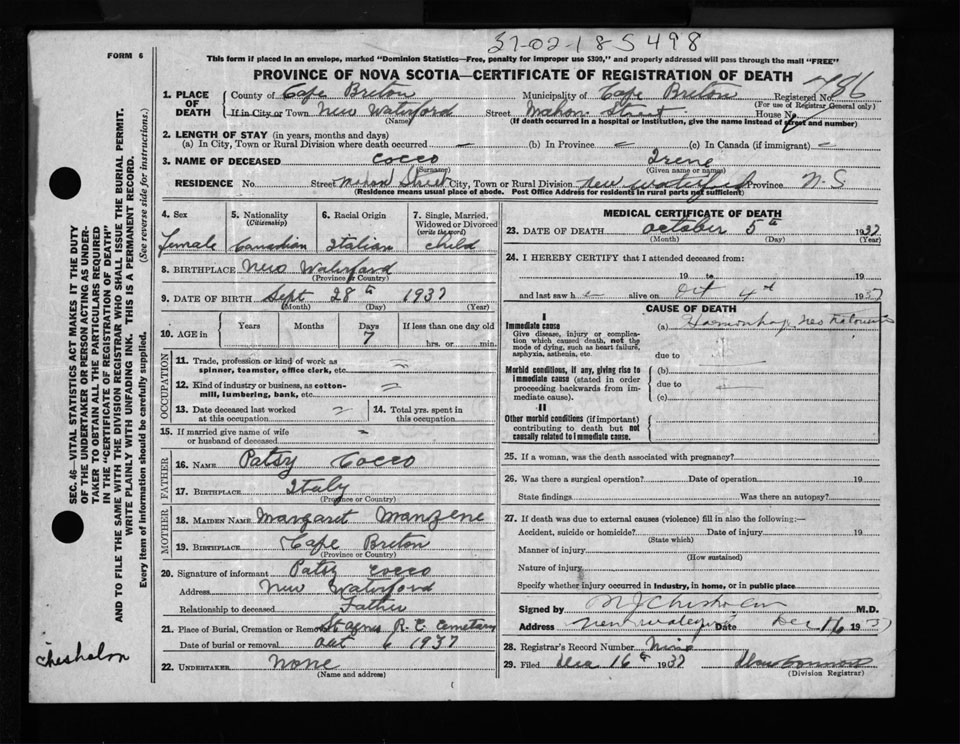 FORM 6
37-02-185498
This form if placed in an envelope, marked "Dominion Statistics—Free, penalty for improper use $300," and properly addressed will pass through the mail "FREE"
PROVINCE OF NOVA SCOTIA—CERTIFICATE OF REGISTRATION OF DEATH
1. PLACE OF DEATH County of Cape Breton Municipality of Cape Breton Registered No. 786
(For use of Registrar General only)
If in City or Town New Waterford Street Mahon Street House No.
(Name) (If death occurred in a hospital or institution, give the name instead of street and number)
2. LENGTH OF STAY (in years, months and days)
(a) In City, Town or Rural Division where death occurred — (b) In Province — (c) In Canada (if immigrant) —
3. NAME OF DECEASED Cocco Irene
(Surname) (Given name or names)
RESIDENCE No. Street Mahon Street City, Town or Rural Division New Waterford Province N-S
(Residence means usual place of abode. Post Office Address for residents in rural parts not sufficient)
4. Sex 5. Nationality (Citizenship) 6. Racial Origin 7. Single, Married, Widowed or Divorced (write the word)
Female Canadian Italian Child
8. BIRTHPLACE New Waterford
(Province or Country)
9. DATE OF BIRTH Sept 28th 1937
(Month) (Day) (Year)
10. AGE in Years Months Days If less than one day old
7 hrs. or min.
OCCUPATION
11. Trade, profession or kind of work as spinner, teamster, office clerk, etc.
12. Kind of industry or business, as cotton-mill, lumbering, bank, etc.
13. Date deceased last worked at this occupation 14. Total yrs. spent in this occupation
15. If married give name of wife or husband of deceased
FATHER
16. NAME Patsy Cocco
17. BIRTHPLACE Italy
(Province or Country)
MOTHER
18. MAIDEN NAME Margaret Manzene
19. BIRTHPLACE Cape Breton
(Province or Country)
20. Signature of informant Patsy Cocco
Address New Waterford
Relationship to deceased Father
21. Place of Burial, Cremation or Removal St Agnes R. C. Cemetary
Date of burial or removal Oct 6 1937
22. UNDERTAKER None
(Name and address)
MEDICAL CERTIFICATE OF DEATH
23. DATE OF DEATH October 5th 1937
(Month) (Day) (Year)
24. I HEREBY CERTIFY that I attended deceased from:
19 to 19
and last saw h alive on Oct 4th 1937
CAUSE OF DEATH
I
Immediate cause (a)
Give disease, injury or complication which caused death, not the mode of dying, such as heart failure, asphyxia, asthenia, etc.
due to
Morbid conditions, if any, giving rise to immediate cause (stated in order proceeding backwards from immediate cause).
(b)
due to
(c)
II
Other morbid conditions (if important) contributing to death but not causally related to immediate cause.
25. If a woman, was the death associated with pregnancy?
26. Was there a surgical operation? Date of operation 19
State findings Was there an autopsy?
27. If death was due to external causes (violence) fill in also the following:—
Accident, suicide or homicide? Date of injury 19
(State which)
Manner of injury
(How sustained)
Nature of injury
Specify whether injury occurred in industry, in home, or in public place
Signed by M J Chisholm M.D.
Address New Waterford Date Dec 16 1937
28. Registrar's Record Number
29. Filed Dec 16th 1937
(Division Registrar)
SEC. 46—VITAL STATISTICS ACT MAKES IT THE DUTY OF THE UNDERTAKER OR PERSON ACTING AS UNDERTAKER TO OBTAIN ALL THE PARTICULARS REQUIRED IN THE "CERTIFICATE OF REGISTRATION OF DEATH" AND TO FILE THE SAME WITH THE DIVISION REGISTRAR WHO SHALL ISSUE THE BURIAL PERMIT.
WRITE PLAINLY WITH UNFADING INK. THIS IS A PERMANENT RECORD.
Every item of information should be carefully supplied. (See reverse side for instructions.)
Chisholm